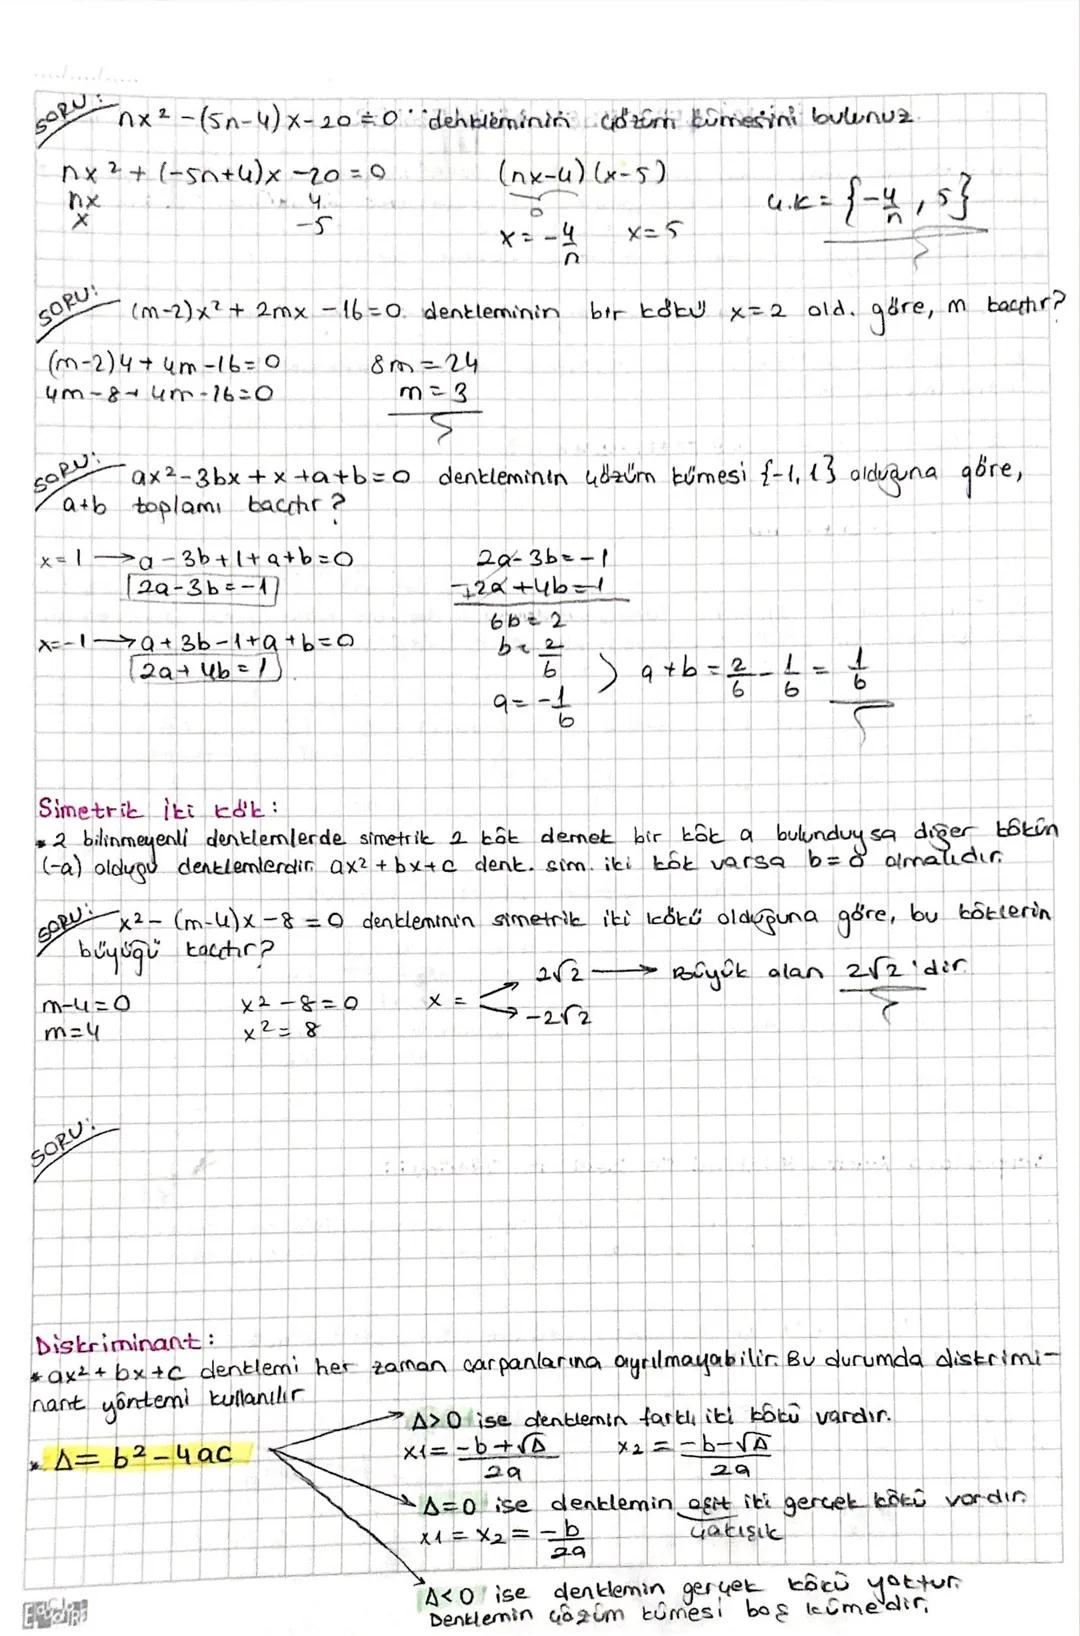 SORU: nx² - (5n-4)x - 20 = 0 denkleminin çözüm kümesini bulunuz.
nx² + (-5n+4)x - 20 = 0
nx 4
x -5
(nx-4)(x-5)
0
x = -4/n x = 5
Ç.K = {-4/n, 5}
SORU: (m-2)x² + 2mx - 16 = 0 denkleminin bir kökü x=2 old. göre, m kaçtır?
(m-2)4 + 4m - 16 = 0 8m = 24
4m - 8 + 4m - 16 = 0 m = 3
SORU: ax² - 3bx + x + a + b = 0 denkleminin çözüm kümesi {-1, 1} olduğuna göre,
a+b toplamı kaçtır?
x = 1 → a - 3b + 1 + a + b = 0
2a - 3b = -1
x = -1 → a + 3b - 1 + a + b = 0
2a + 4b = 1
2a - 3b = -1
-2a + 4b = 1
6b = 2
b = 2/6
a = -1/6
a + b = 2/6 - 1/6 = 1/6
Simetrik İki Kök:
* 2 bilinmeyenli denklemlerde simetrik 2 kök demek bir kök a bulunduysa diğer kökün
(-a) olduğu denklemlerdir. ax² + bx + c denk. sim. iki kök varsa b = 0 olmalıdır.
SORU: x² - (m-4)x - 8 = 0 denkleminin simetrik iki kökü olduğuna göre, bu köklerin
büyüğü kaçtır?
m - 4 = 0 x² - 8 = 0
m = 4 x² = 8
x = 2√2 → Büyük olan 2√2 'dir.
-2√2
SORU:
Diskriminant:
* ax² + bx + c denklemi her zaman çarpanlarına ayrılmayabilir. Bu durumda diskrimi-
nant yöntemi kullanılır
* Δ = b² - 4ac
Δ>0 ise denklemin farklı iki kökü vardır.
x1 = -b+√Δ/2a x2 = -b-√Δ/2a
Δ=0 ise denklemin eşit iki gerçek kökü vardır.
x1 = x2 = -b/2a çakışık
Δ<0 ise denklemin gerçek kökü yoktur.
Denklemin çözüm kümesi boş kümedir.